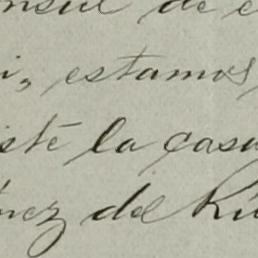 nsul de e
i, estamos,
isté la casu
ñez del Rí